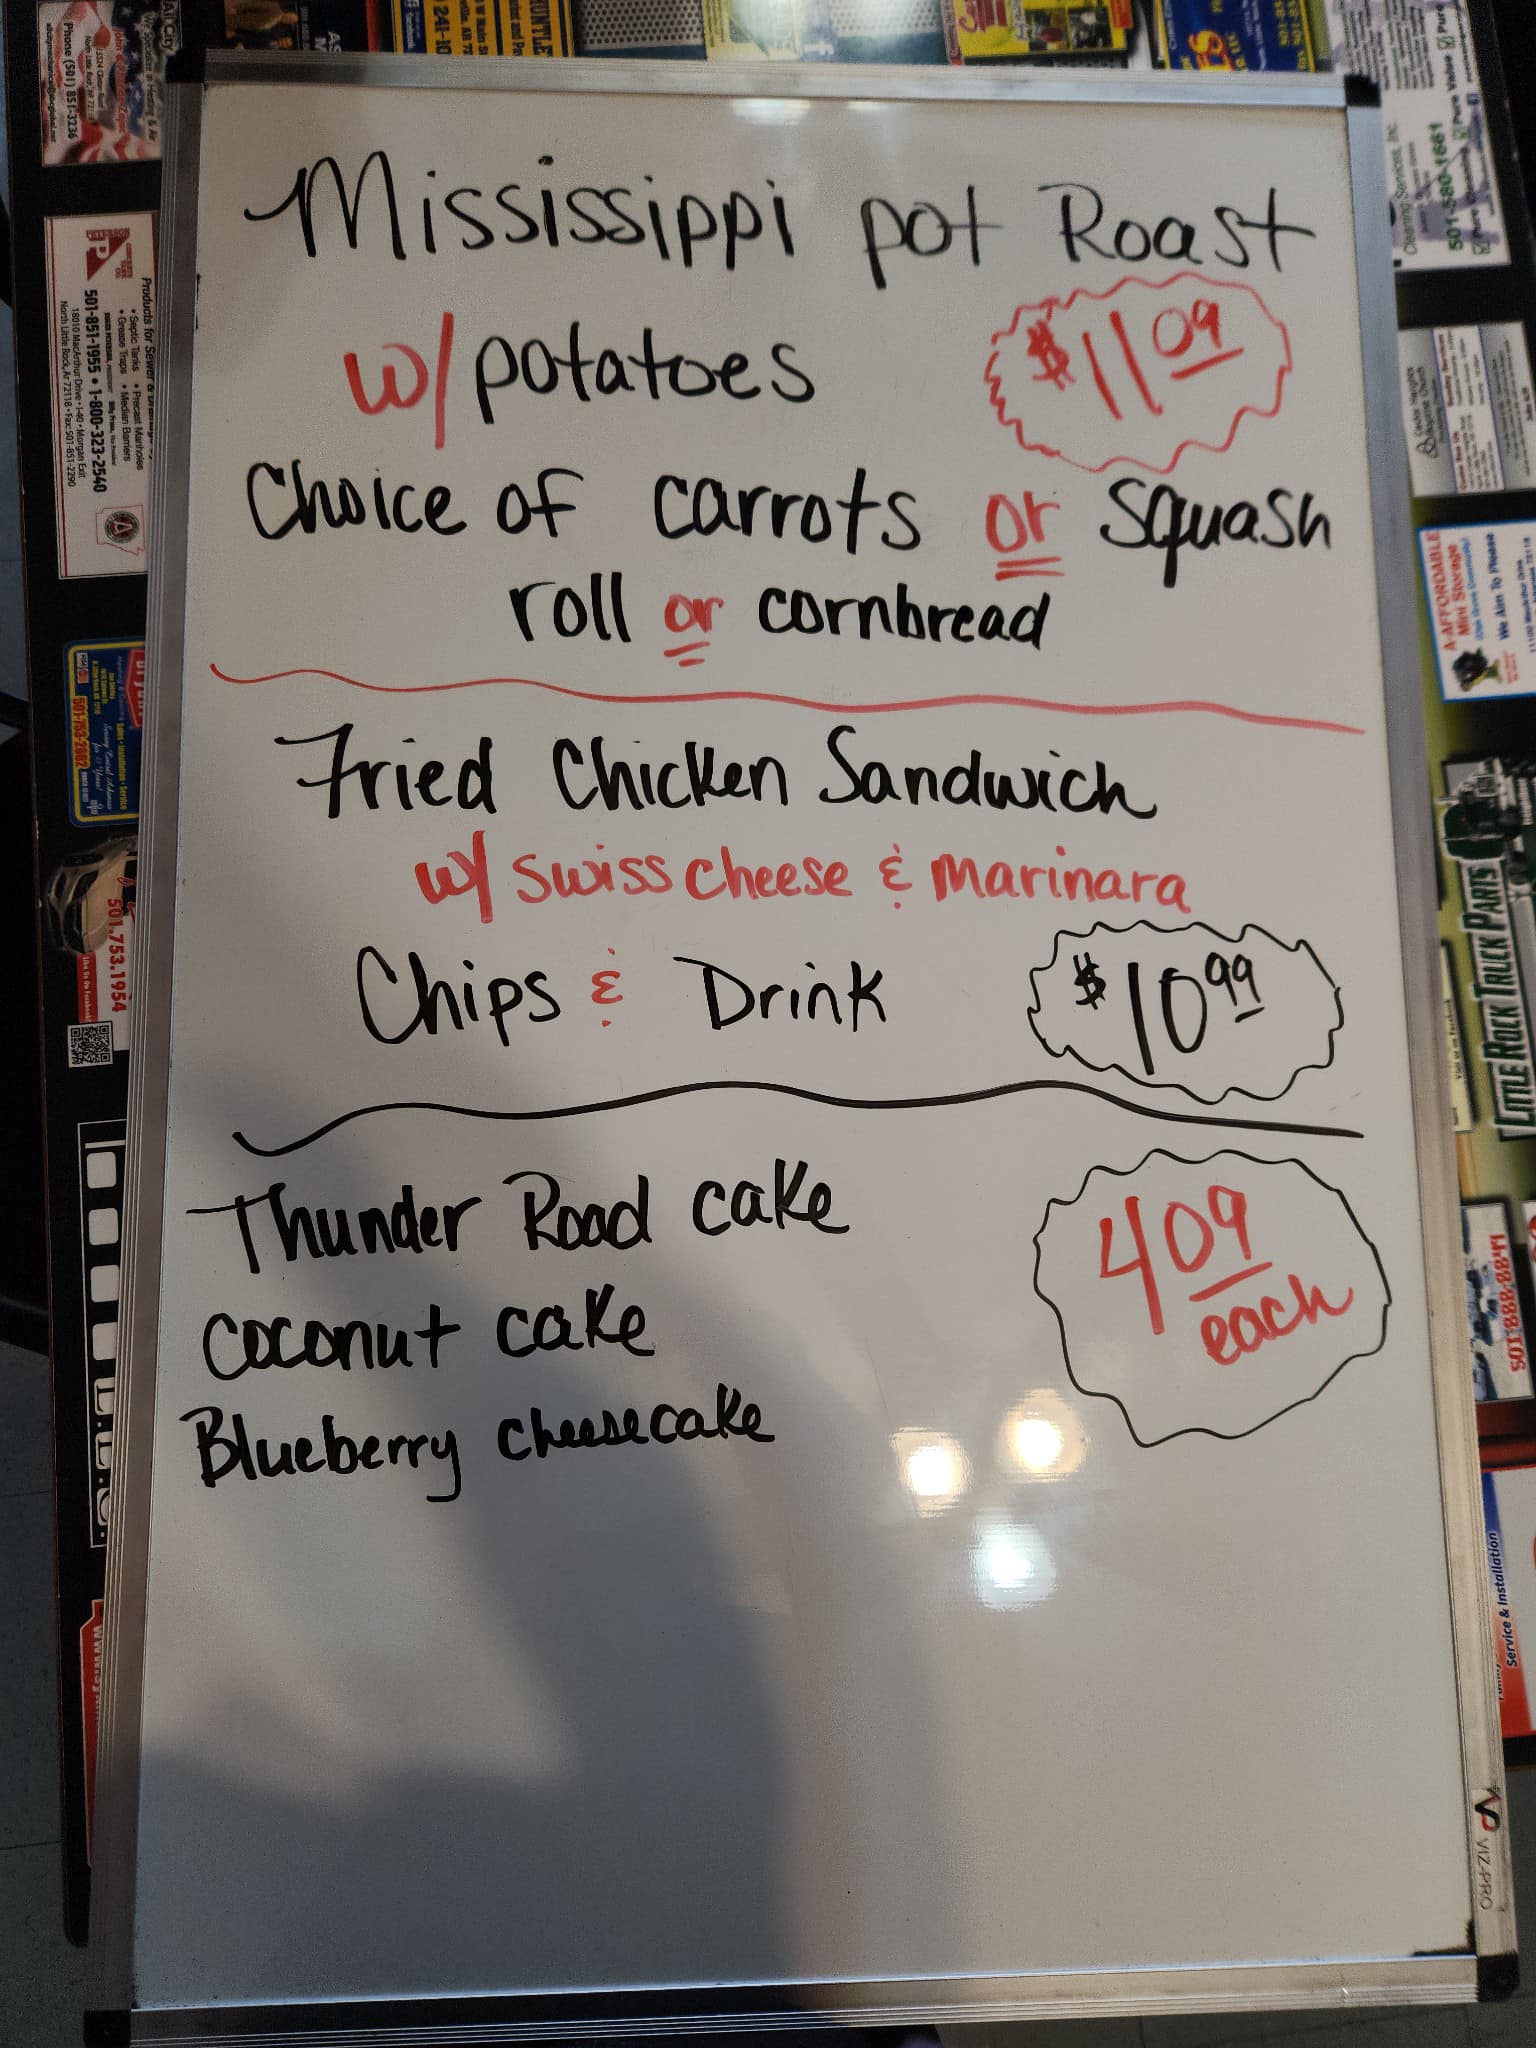 Mississippi pot Roast
w/ potatoes $11.09
Choice of carrots or squash
roll or cornbread
Fried Chicken Sandwich
w/ swiss cheese & marinara
Chips & Drink $10.99
Thunder Road cake 4.09
each
coconut cake
Blueberry cheesecake
VIZ-PRO
Phone (501) 851-3236
Products for Sewer &
• Septic Tanks • Precast Manholes
• Grease Traps • Median Barriers
501-851-1955 • 1-800-323-2540
18010 MacArthur Drive • I-40 • Morgan Exit
North Little Rock, Ar 72118 • Fax: 501-851-2290
501-753-2062
501.753.1954
Like Us On Facebook!
Cleaning Services, Inc.
501-580-1661
A-AFFORDABLE
Mini Storage
We Aim To Please
LITTLE ROCK TRUCK PARTS
501-888-8841
Service & Installation